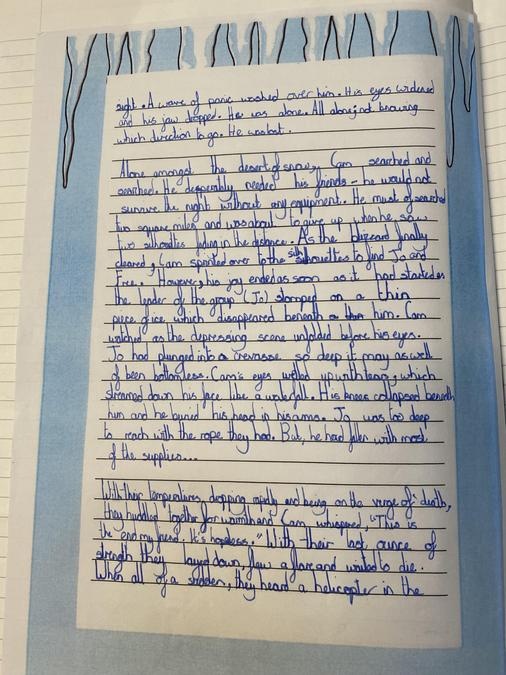 sight. A wave of panic washed over him. His eyes widened
and his jaw dropped. He was alone. All alone, not knowing
which direction to go. He was lost.
Alone amongst the desert of snow, Cam searched and
searched. He desperately needed his friends - he would not
survive the night without any equipment. He must of searched
two square miles and was about to give up when he saw
two silhouettes in the distance. As the blizzard finally
cleared, Cam sprinted over to the silhouettes to find Jo and
Free. However, his joy ended as soon as it had started as
the leader of the group (Jo) stomped on a thin
piece of ice which disappeared beneath him. Cam
watched as the depressing scene unfolded before his eyes.
Jo had plunged into a crevasse so deep it may as well
of been bottomless. Cam's eyes welled up with tears, which
streamed down his face like a waterfall. His knees collapsed beneath
him and he buried his head in his arms. Jo was too deep
to reach with the rope they had. But, he had fallen with most
of the supplies...
With their temperatures, dropping rapidly and being on the verge of death,
they huddled together for warmth and Cam whispered, "This is
the end my friend. It's hopeless." With their last ounce of
strength they layed down, flew a flare and waited to die.
When all of a sudden, they heard a helicopter in the